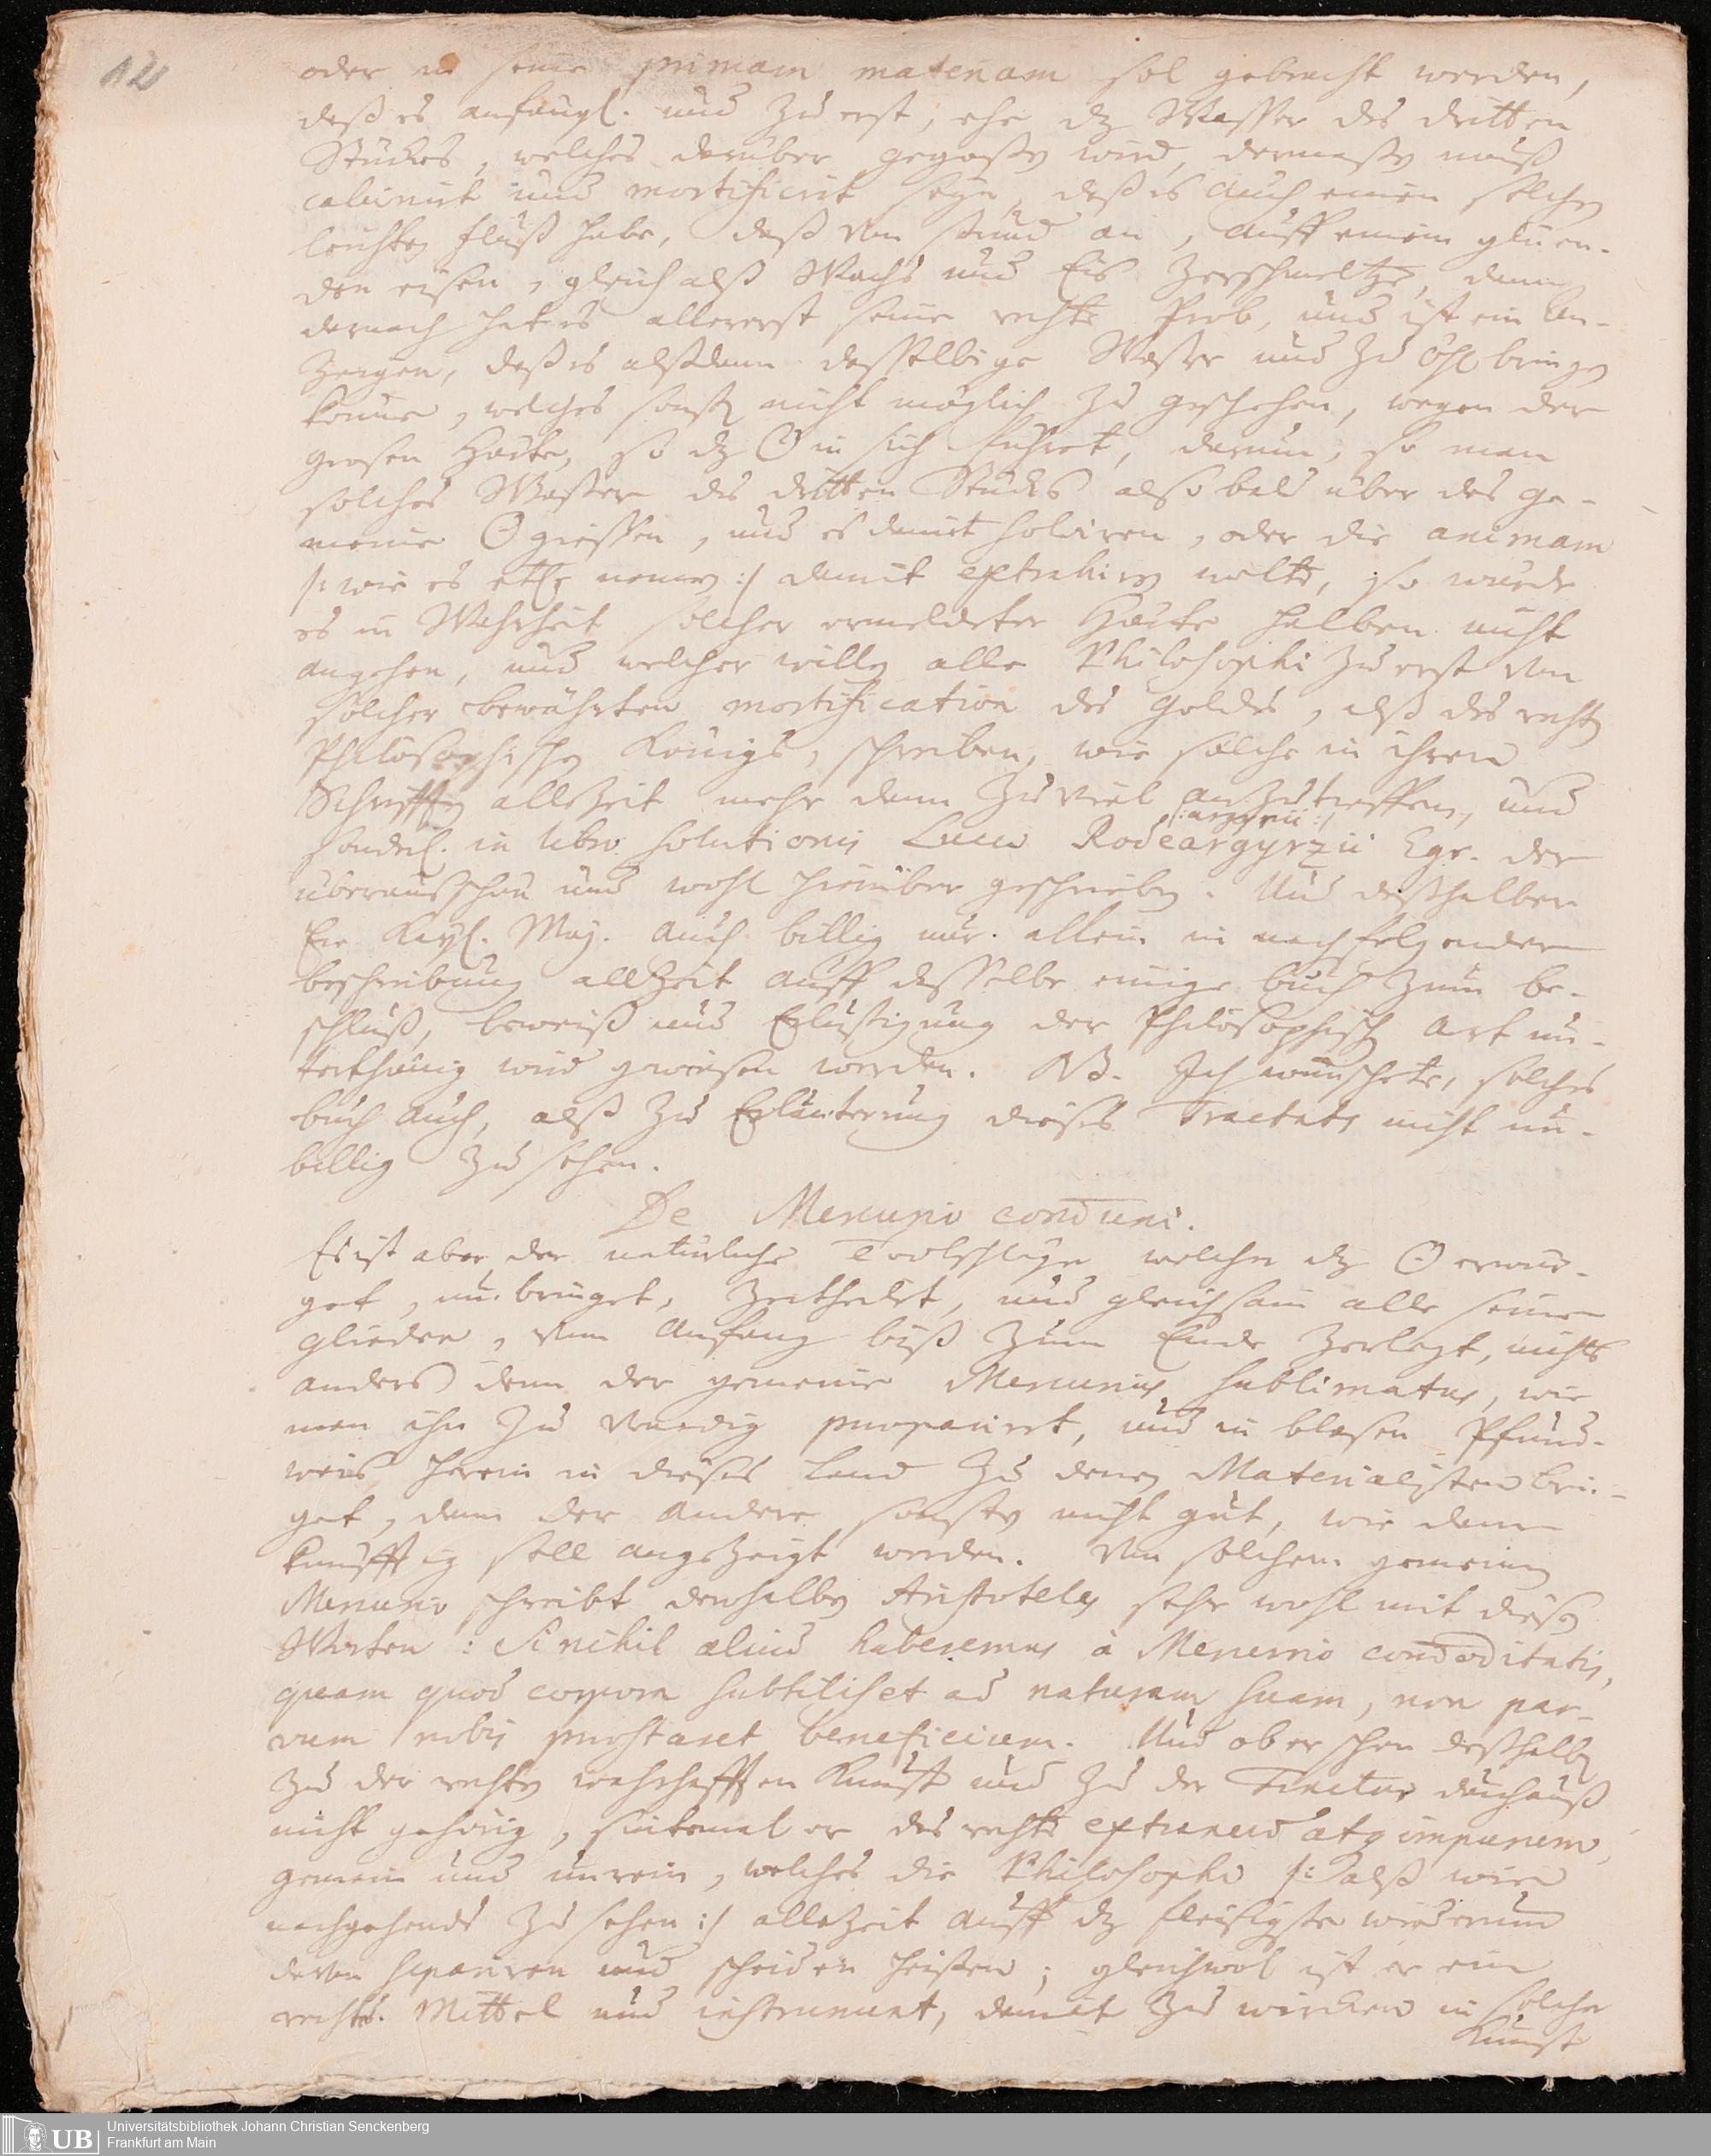 12
oder in seine primam materiam sol gebracht werden,
daß es anfängl. und zu erst, ehe dz Wasser des dritten
Stückes, welches darüber gegossen wird, dermassen muß
calcinirt und mortificirt seyn, daß es auch einen solchen
leichten fluß habe, daß von stund an, auff einem glüen-
den eisen, gleich alß Wachs und Eis zerschmeltze, dann
darnach hat es allererst seine rechte Prob, und ist ein An-
zeigen, daß es alßdann dasselbige Wasser und zu öhl bringen
könne, welches sonst nicht möglich zu geschehen, wegen der
grosen Härte, so dz ☉ in sich führet, darum, so man
solches Wasser des dritten Stücks alsobald über das ge-
meine ☉ giessen, und es damit solviren, oder die animam
/: wie es etl. nennen :/ damit extrahiren wolte, so würde
es in Wahrheit solcher ermeldeter Härte halben nicht
angehen, umb welcher willen alle Philosophi zu erst von
solcher bewährten mortification des Goldes, alß des rechten
Philosophischen Königs, schreiben, wie solche in ihren
Schrifften allezeit mehr dann zu viel anzutreffen, und
sonderl. in libro solutionis Luco Rodeargyrzii Eqr. der
/: argyrii :/
überauß schön und wohl hierüber geschrieben. Und desthalben
Ew. Kayl. May. auch billig nur allein in nachfolgender
beschreibung allezeit auff dasselbe einige buch zum be-
schluß, beweiß und Belustigung der Philosophischen Art un-
terthänig wird gewiesen werden. NB. Ich wünschete, solches
buch auch, alß zu Erläuterung dieses Tractats nicht un-
billig zu sehen.
De Mercurio communi.
Es ist aber der natürliche Todtschläger welcher dz ☉ erwür-
get, umbringet, zertheilet, und gleichsam alle seine
glieder, vom Anfang biß zum Ende zerlegt, nichts
anders denn der gemeine Mercurius sublimatus, wie
man ihn zu Venedig præparirt, und in blasen Pfund-
weis herein in dieses Land zu denen Materialisten brin-
get, dann der andere sonsten nicht gut, wie dann
künfftig soll angezeigt werden. Von solchem gemeinen
Mercurio schreibt derhalben Aristoteles sehr wohl mit diesen
Worten: Si nihil aliud haberemus à Mercurio commoditatis,
quam quod corpora subtiliset ad naturam suam, non par-
vum nobis præstaret beneficium. Und ob er schon desthalben
zu der rechten warhafften Kunst und zu der Tinctur durchauß
nicht gehörig, sintemal er das rechte extraneum atq impurum,
gemein und unrein, welches die Philosophi /: alß wir
nachgehends zu sehen :/ allezeit auff dz fleisigste wiederum
davon separiren und scheiden heissen; gleichwol ist er ein
rechtes Mittel und instrument, damit zu wircken in solcher
Kunst
Universitätsbibliothek Johann Christian Senckenberg
Frankfurt am Main
UB